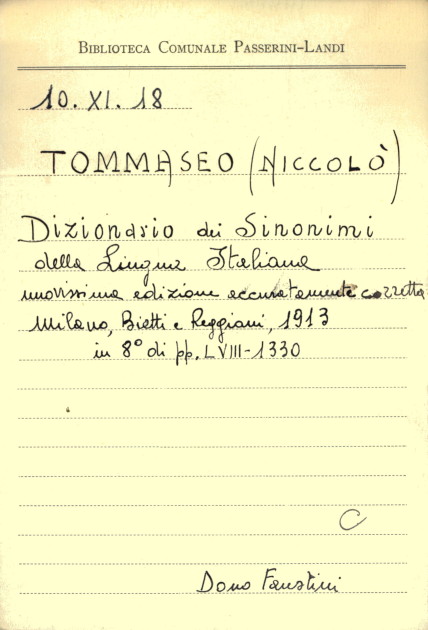 BIBLIOTECA COMUNALE PASSERINI-LANDI
10. XI. 18
TOMMASEO (NICCOLÒ)
Dizionario dei Sinonimi
della Lingua Italiana
nuovissima edizione accuratamente corretta
Milano, Bietti e Reggiani, 1913
in 8° di pp. LVIII-1330
C
Dono Faustini